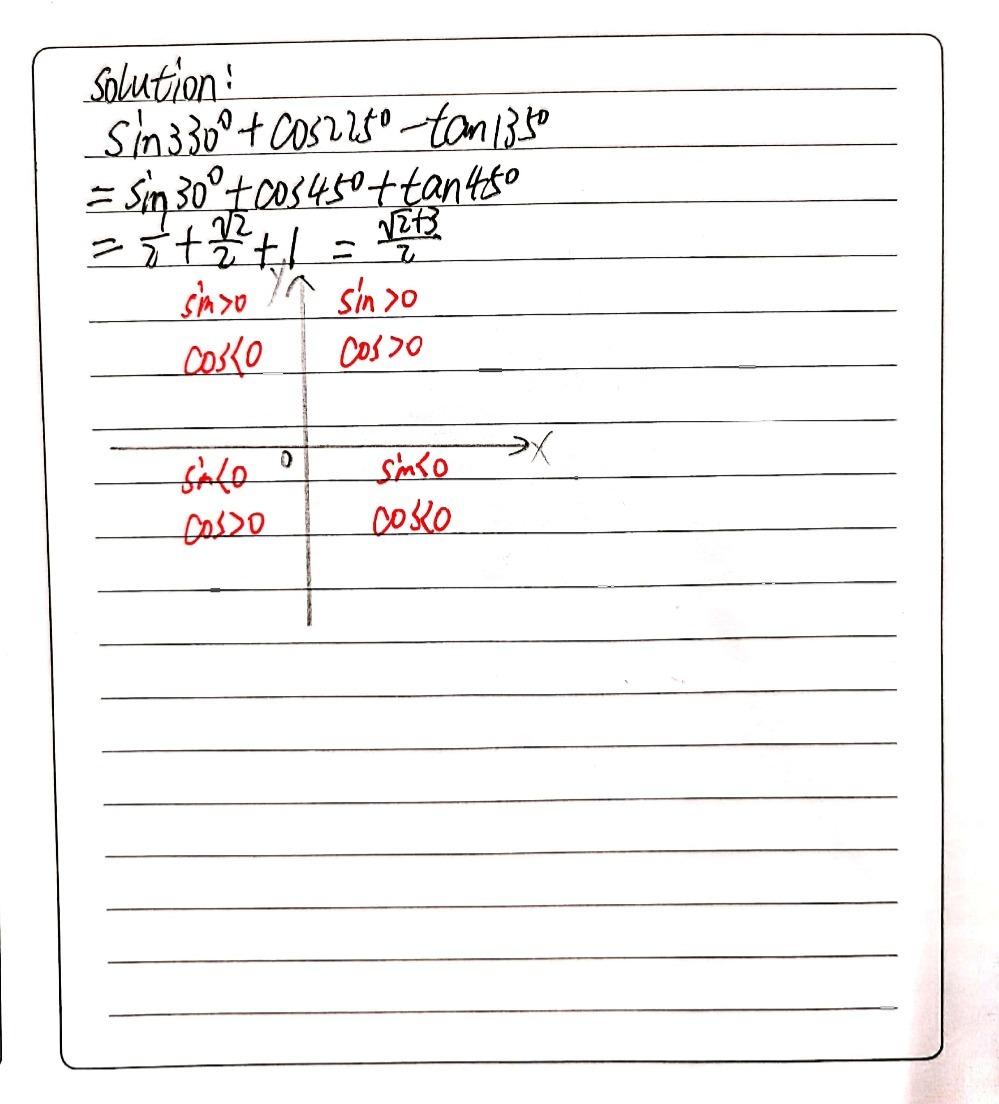 Solution:
sin330°+cos225°-tan135°
=sin30°+cos45°+tan45°
=1/2+√2/2+1=(√2+3)/2
y
sin>0 sin>0
cos<0 cos>0
x
0
sin<0 sin<0
cos>0 cos<0